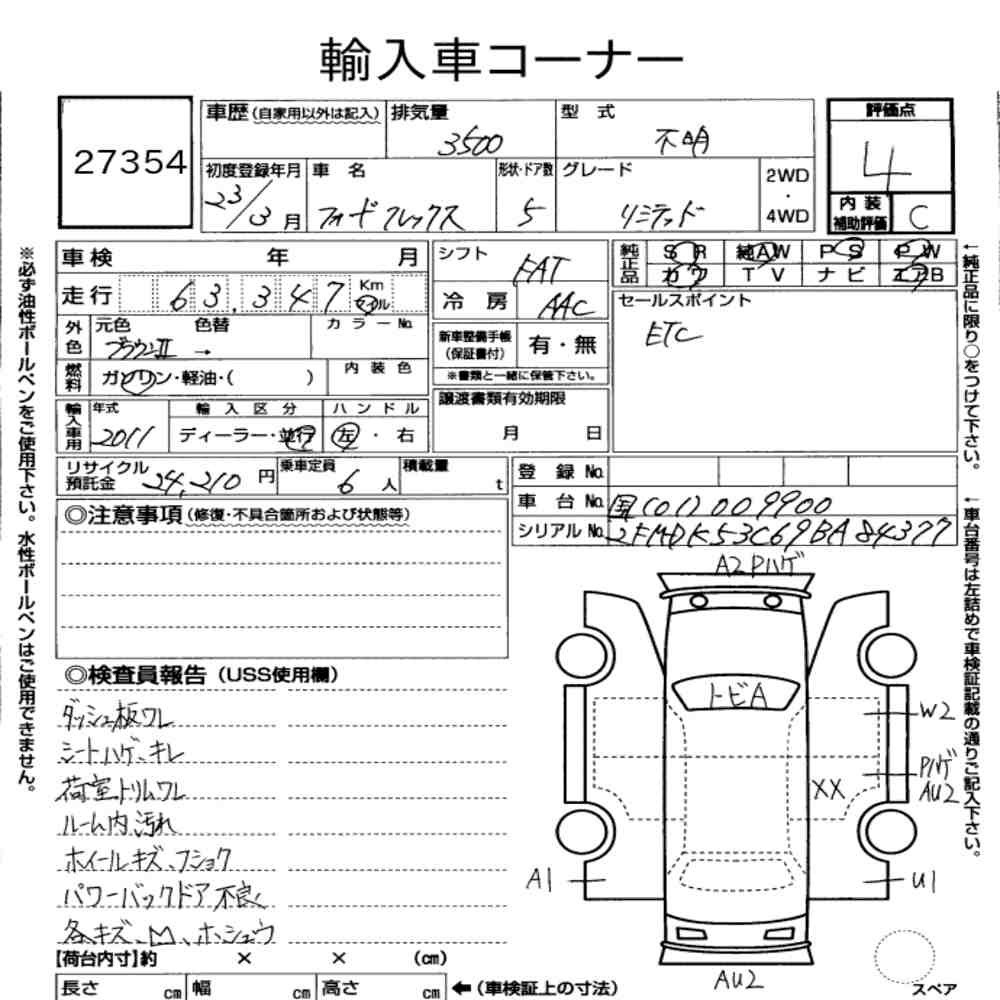 輸入車コーナー
27354
車歴(自家用以外は記入)
排気量
3500
型 式
不明
評価点
4
初度登録年月
23/3月
車 名
フォード フレックス
形状・ドア数
5
グレード
リミテッド
2WD
・
4WD
内 装
補助評価
C
車検 年 月
シフト
FAT
純正品
SR 純AW PS PW
カワ TV ナビ エアB
走行 63,347 Km マイル
冷 房
AAC
セールスポイント
ETC
外色
元色 色替
ブラウンII →
カラーNo.
新車整備手帳
(保証書付)
有・無
※書類と一緒に保管下さい。
燃料
ガソリン・軽油・( )
内装色
輸入車用
年式
2011
輸入区分
ディーラー・並行
ハンドル
左・右
譲渡書類有効期限
月 日
リサイクル
預託金
24,210円
乗車定員
6人
積載量
t
登 録 No.
車 台 No.
国[01]009900
シリアル No.
2FMDK53C69BA84377
◎注意事項(修復・不具合箇所および状態等)
◎検査員報告(USS使用欄)
ダッシュ板ワレ
シートハゲ、キレ
荷室トリムワレ
ルーム内汚れ
ホイールキズ、フショク
パワーバックドア不良
各キズ、凹、ホシュウ
A2 Pハゲ
トビA
W2
Pハゲ
AU2
XX
A1
U1
AU2
スペア
【荷台内寸】約 × × (cm)
長さ cm 幅 cm 高さ cm ←(車検証上の寸法)
※必ず油性ボールペンをご使用下さい。水性ボールペンはご使用できません。
←純正品に限り○をつけて下さい。
←車台番号は左詰めで車検証記載の通りご記入下さい。